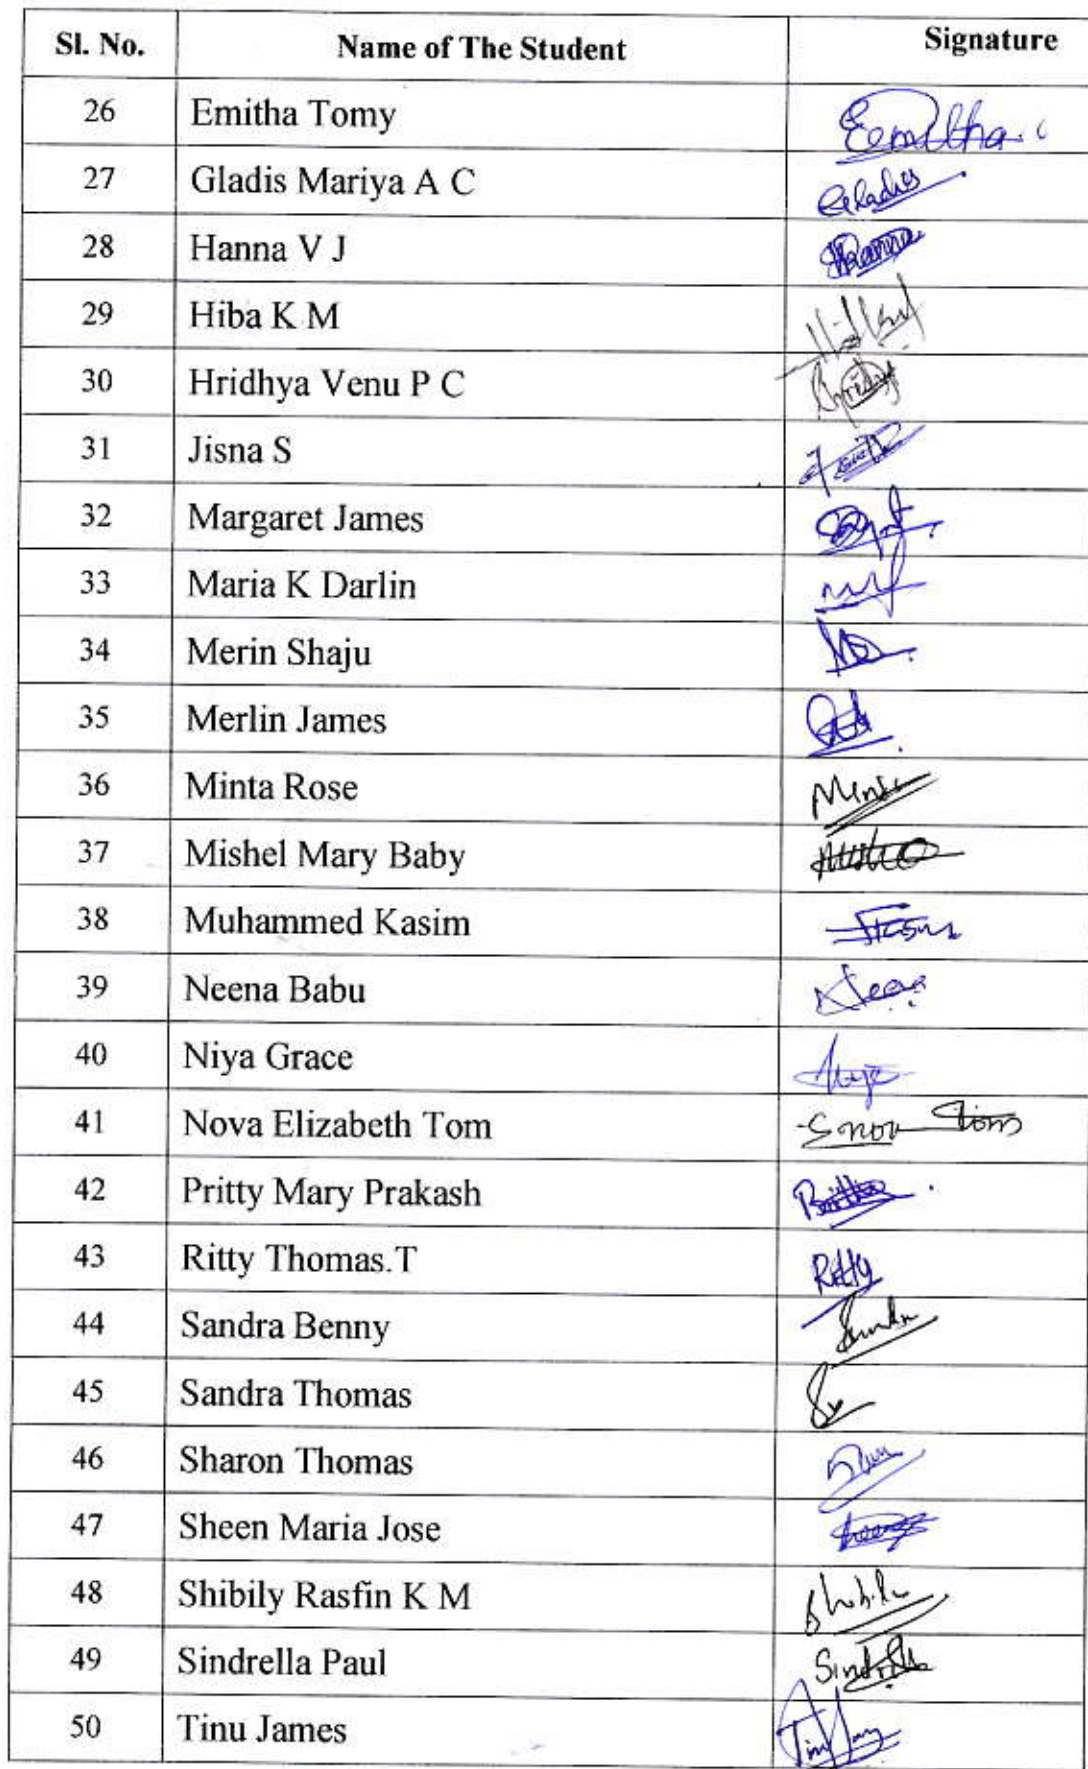 Sl. No. Name of The Student Signature
26 Emitha Tomy Eemitha
27 Gladis Mariya A C Gladis
28 Hanna V J Hanna
29 Hiba K M
30 Hridhya Venu P C
31 Jisna S
32 Margaret James
33 Maria K Darlin
34 Merin Shaju
35 Merlin James
36 Minta Rose Minta
37 Mishel Mary Baby
38 Muhammed Kasim
39 Neena Babu Neena
40 Niya Grace
41 Nova Elizabeth Tom
42 Pritty Mary Prakash
43 Ritty Thomas.T Ritty
44 Sandra Benny
45 Sandra Thomas
46 Sharon Thomas
47 Sheen Maria Jose
48 Shibily Rasfin K M
49 Sindrella Paul
50 Tinu James